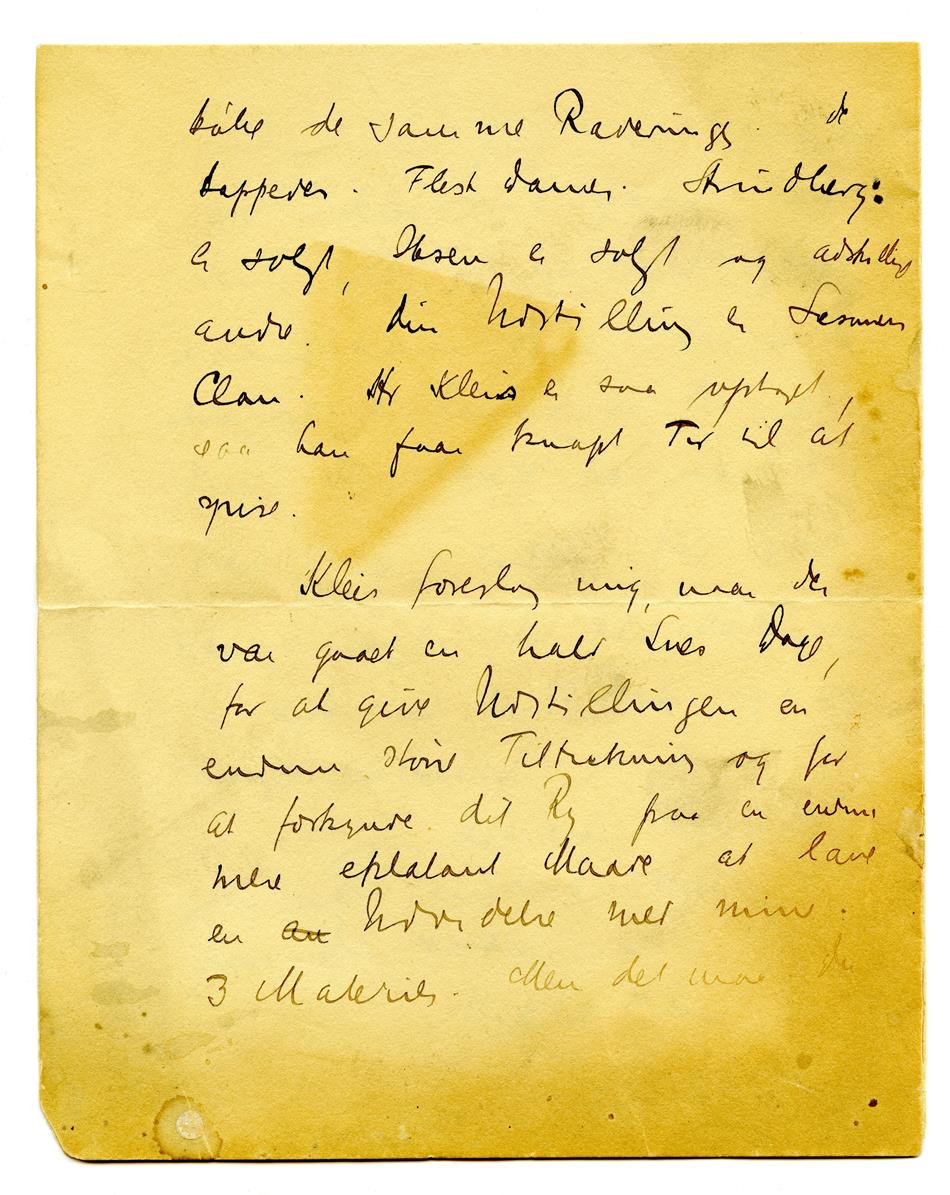 købe de samme Raderinger. de
tappedes. Flest Damer. Strindberg:
er solgt, Ibsen er solgt og adskellige
andre. din Udstilling er Sesonens
Clou. Hr Kleis er saa optaget,
saa han faar knapt Tid til at
spise.
Kleis foreslog mig, naar der
var gaaet en halv Snes Dage,
for at give Udstillingen en
endnu større Tiltrækning og for
at forkynde dit Ry paa en endnu
mere eklatant Maade at lave
en an Udvidelse med mine
3 Malerier. Men det maa du